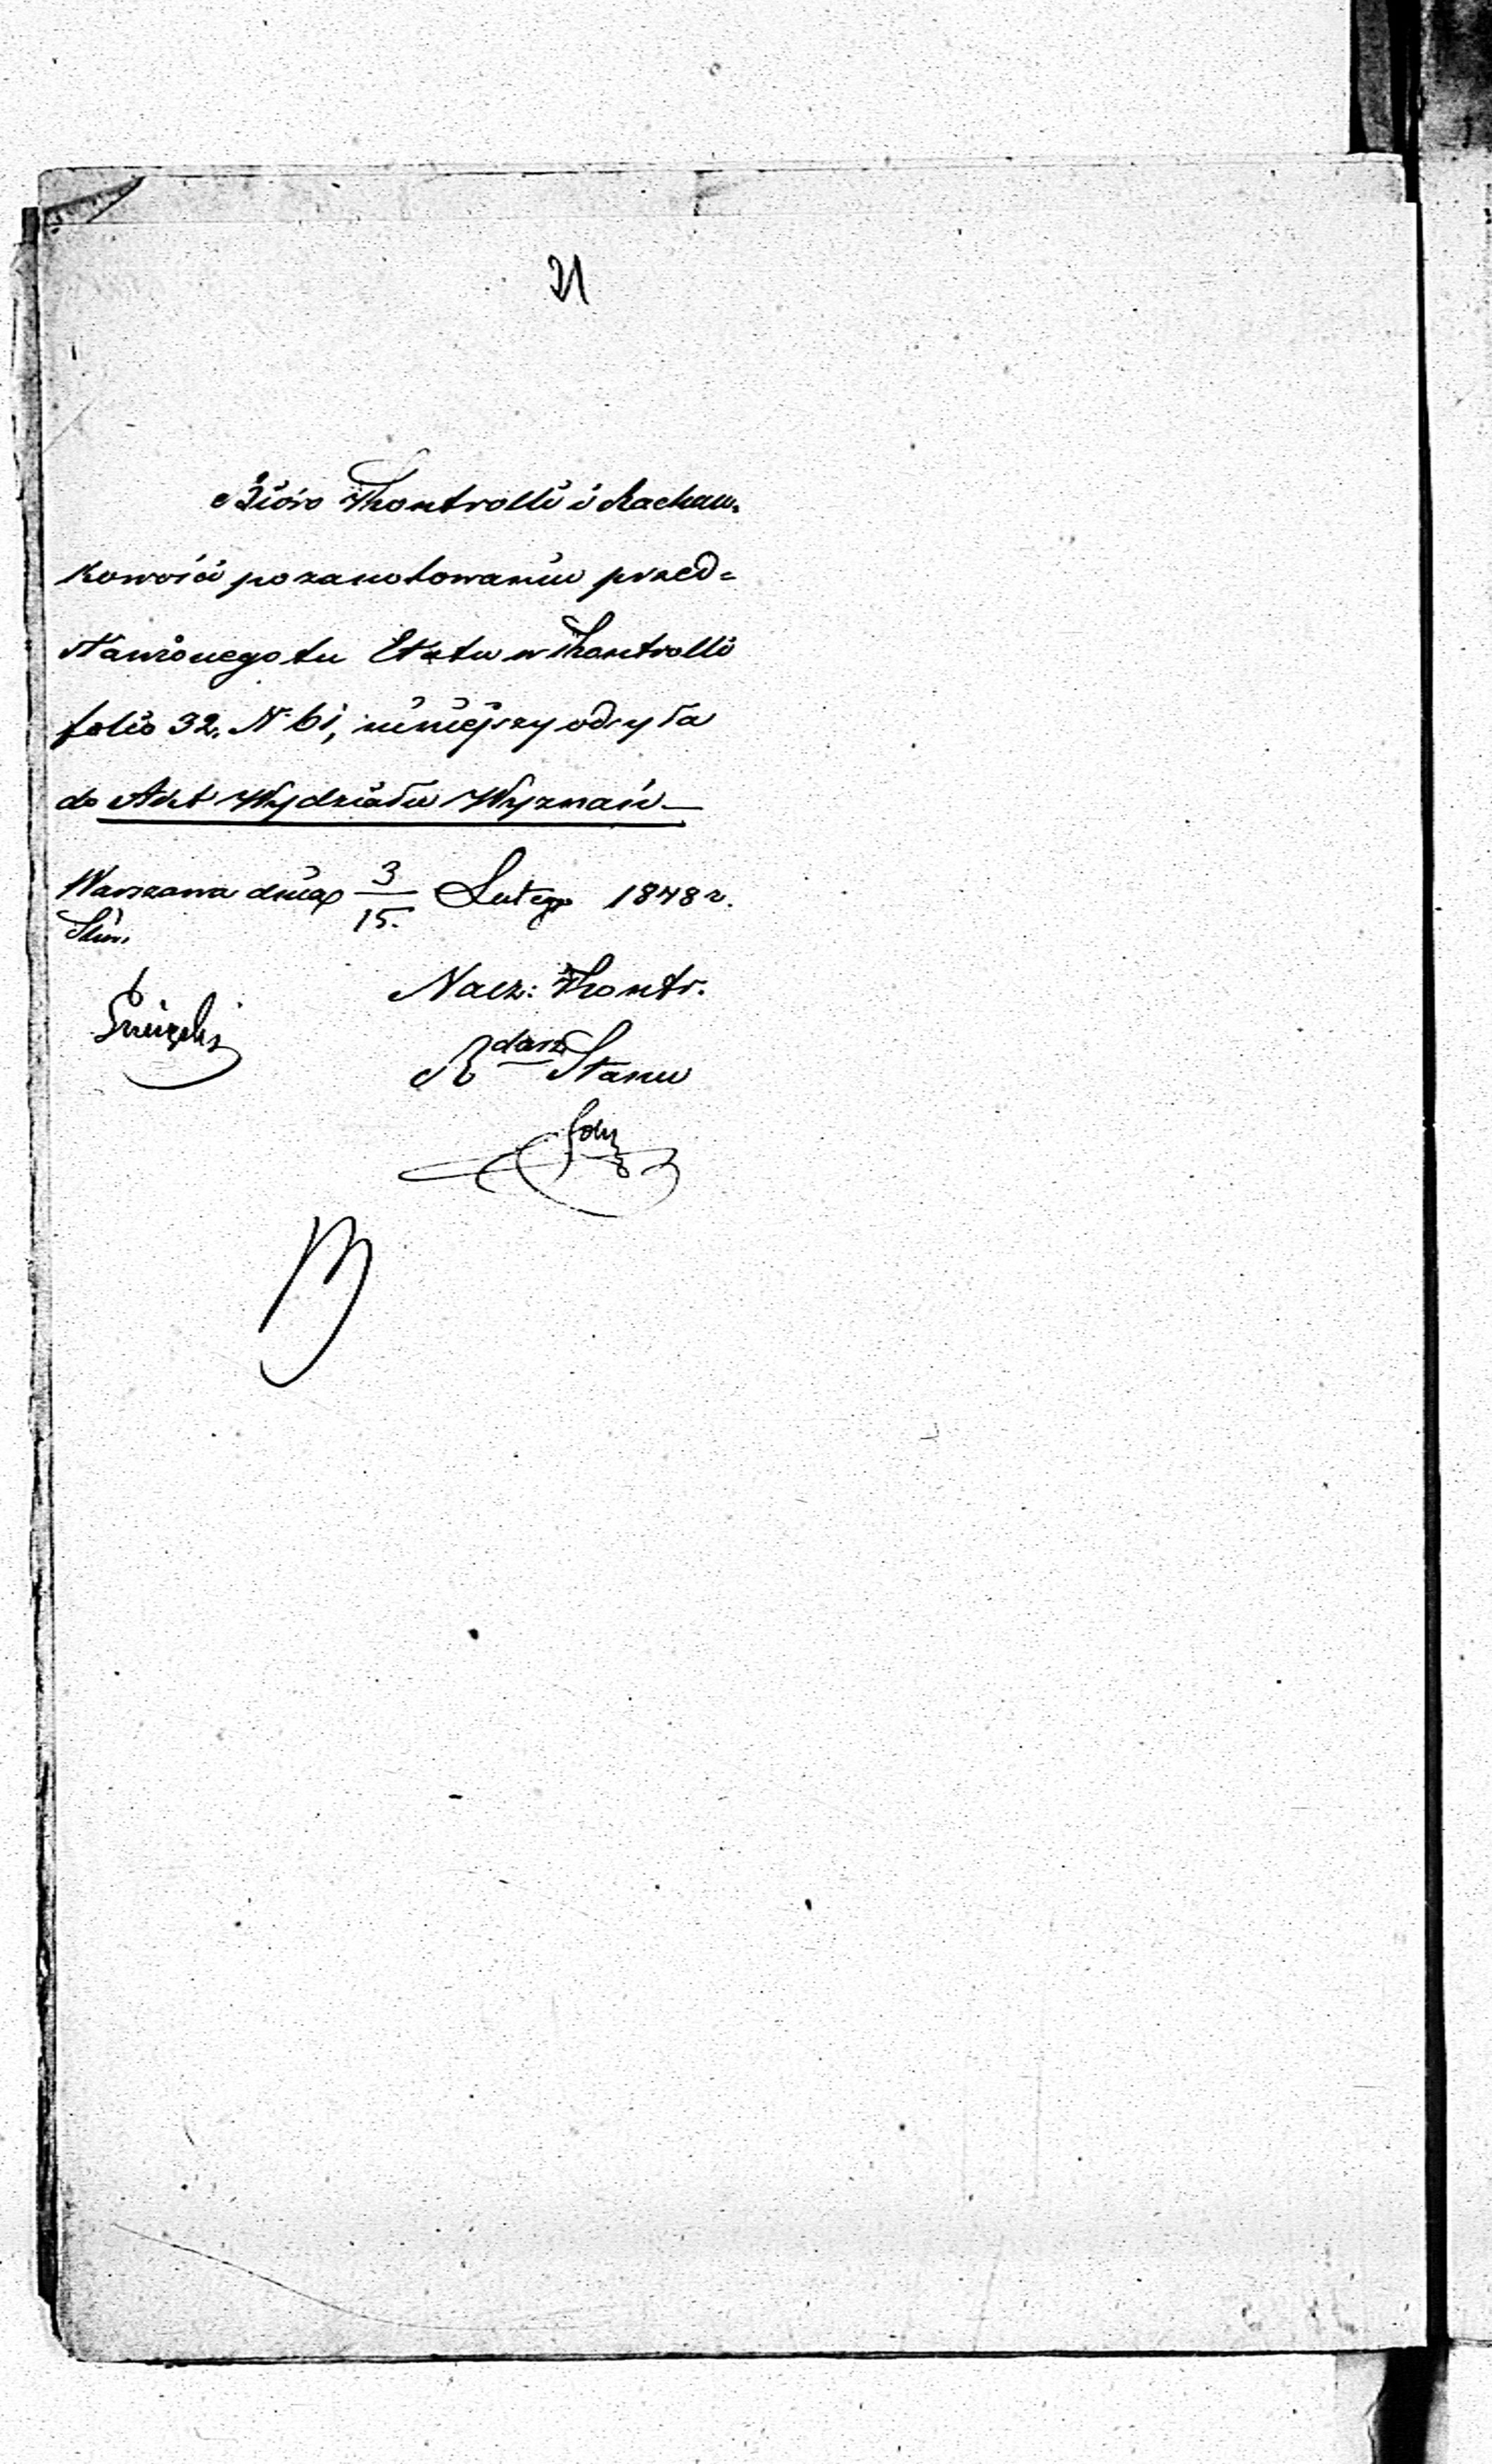 21
Bióro Kontrolli i Rachun-
kowości po zanotowaniu przed-
stawionego tu Etatu w Kontrolli
folio 32. N. 61, niniejszy odsyła
do Akt Wydziału Wyznań
Warszawa dnia 3/15. Lutego 1848 r.
Nacz: Kontr.
Rdca Stanu